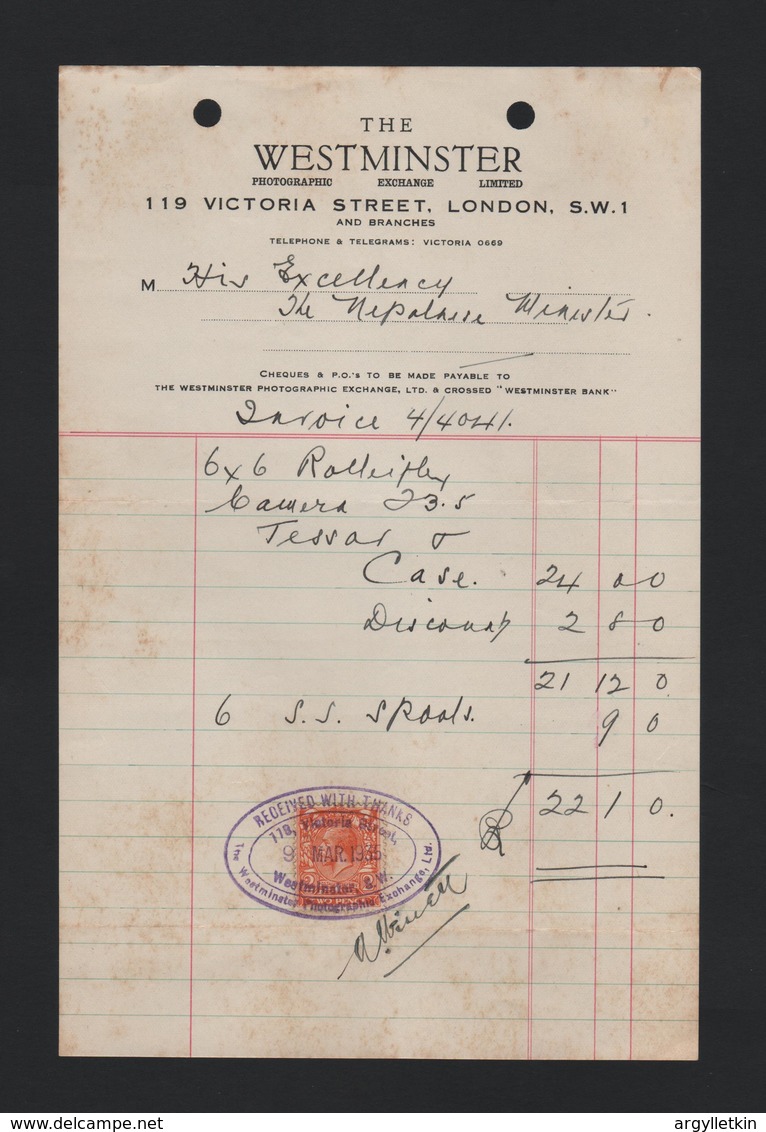 THE
WESTMINSTER
PHOTOGRAPHIC EXCHANGE LIMITED
119 VICTORIA STREET, LONDON, S.W.1
AND BRANCHES
TELEPHONE & TELEGRAMS: VICTORIA 0669
M His Excellency
The Nepalese Minister.
CHEQUES & P.O.'s TO BE MADE PAYABLE TO
THE WESTMINSTER PHOTOGRAPHIC EXCHANGE, LTD. & CROSSED "WESTMINSTER BANK"
Invoice 4/4041.
6x6 Rolleiflex
Camera F3.5
Tessar &
Case. 24 0 0
Discount 2 8 0
21 12 0
6 S.S. Spools. 9 0
22 1 0.
RECEIVED WITH THANKS
119, Victoria Street,
9 MAR. 1935
Westminster, S.W.
The Westminster Photographic Exchange, Ltd.
TWO PENCE
www.delcampe.net
argylletkin